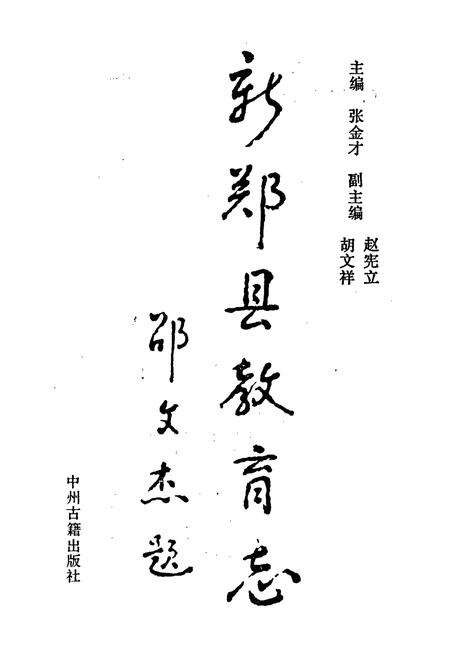 主编 张金才 副主编 赵宪立
胡文祥
新郑县教育志
邵文杰题
中州古籍出版社